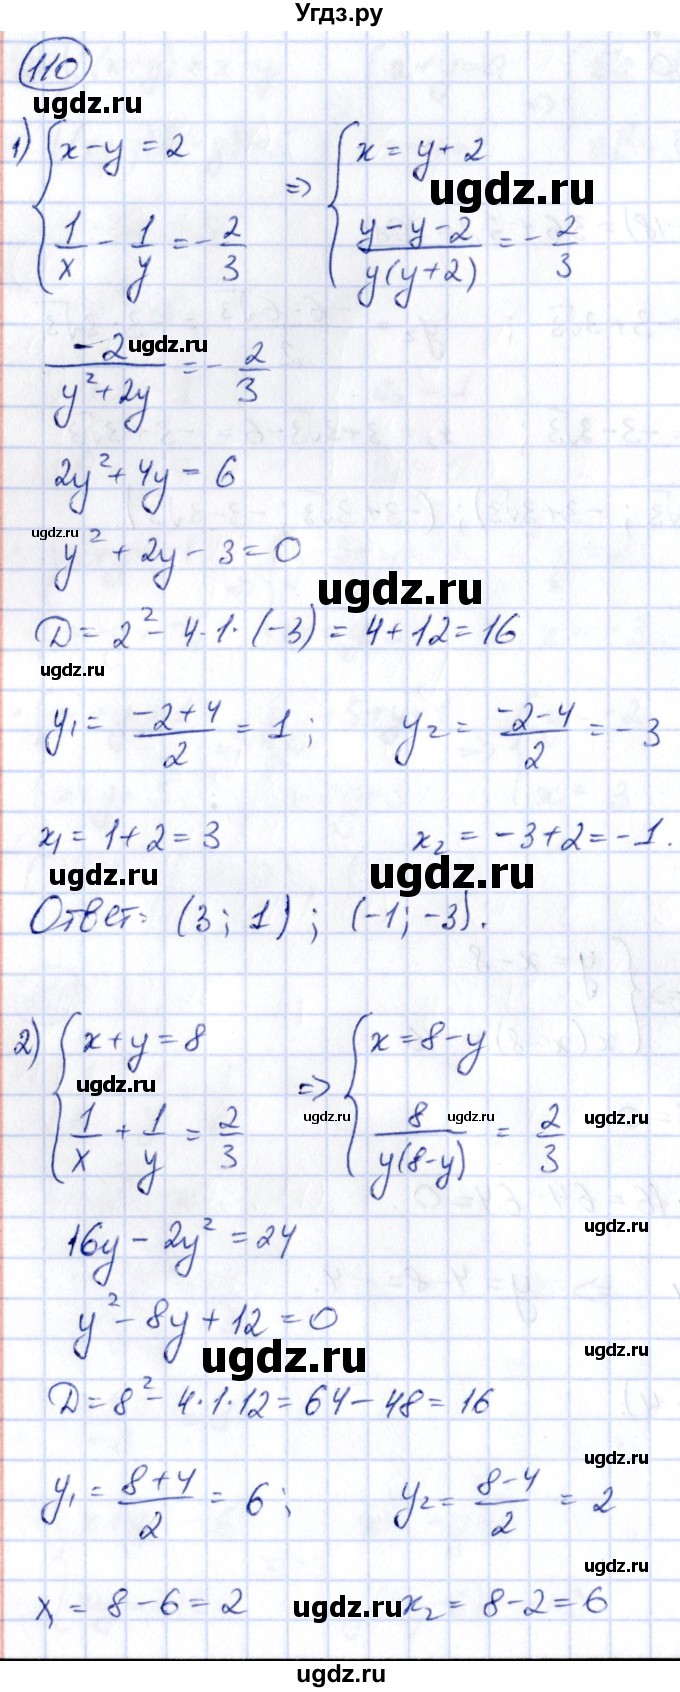 Угдз.ру
110
ugdz.ru
1) { x - y = 2
1/x - 1/y = -2/3
=> { x = y + 2
ugdz.ru
(y - y - 2)/(y(y+2)) = -2/3
-2/(y² + 2y) = -2/3
ugdz.ru
2y² + 4y = 6
ugdz.ru
y² + 2y - 3 = 0
ugdz.ru
D = 2² - 4·1·(-3) = 4 + 12 = 16
ugdz.ru
y₁ = (-2+4)/2 = 1; y₂ = (-2-4)/2 = -3
x₁ = 1 + 2 = 3 x₂ = -3 + 2 = -1.
ugdz.ru ugdz.ru
Ответ: (3; 1); (-1; -3).
2) { x + y = 8
1/x + 1/y = 2/3
ugdz.ru
=> { x = 8 - y
8/(y(8-y)) = 2/3
ugdz.ru ugdz.ru ugdz.ru
16y - 2y² = 24
ugdz.ru
y² - 8y + 12 = 0
ugdz.ru ugdz.ru
D = 8² - 4·1·12 = 64 - 48 = 16
ugdz.ru
y₁ = (8+4)/2 = 6; y₂ = (8-4)/2 = 2
ugdz.ru
x₁ = 8 - 6 = 2 x₂ = 8 - 2 = 6
ugdz.ru
ugdz.ru